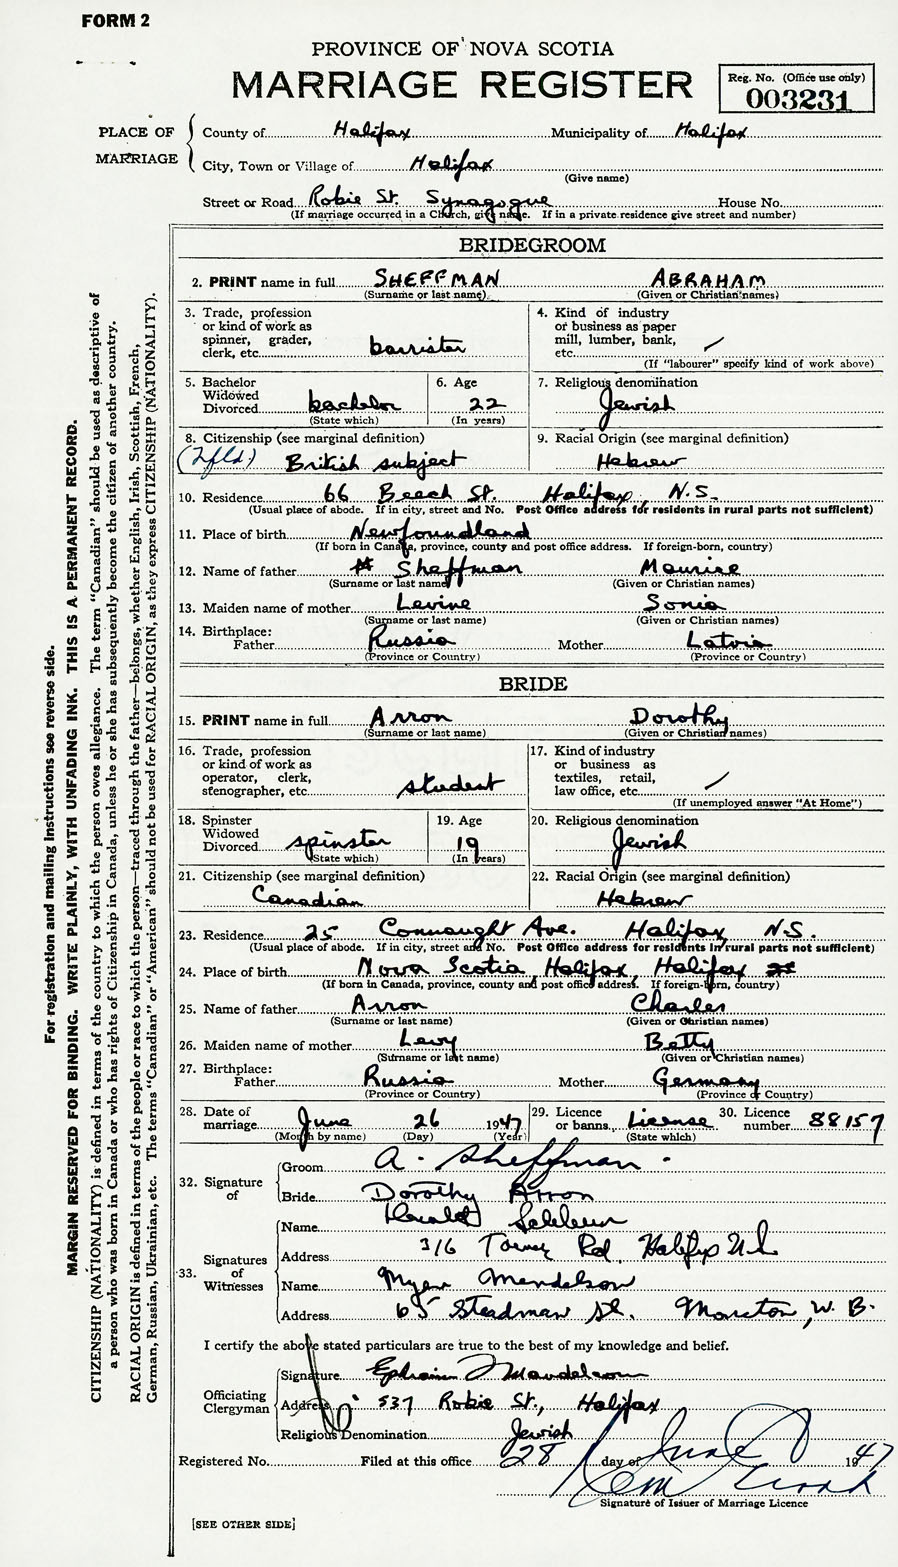 FORM 2
PROVINCE OF NOVA SCOTIA
MARRIAGE REGISTER
Reg. No. (Office use only)
003231
PLACE OF MARRIAGE
County of Halifax Municipality of Halifax
City, Town or Village of Halifax
(Give name)
Street or Road Robie St. Synagogue House No.
(If marriage occurred in a Church, give name. If in a private residence give street and number)
BRIDEGROOM
2. PRINT name in full SHEFFMAN ABRAHAM
(Surname or last name) (Given or Christian names)
3. Trade, profession or kind of work as spinner, grader, clerk, etc. barrister
4. Kind of industry or business as paper mill, lumber, bank, etc. /
(If "labourer" specify kind of work above)
5. Bachelor Widowed Divorced bachelor
(State which)
6. Age 22
(In years)
7. Religious denomination
Jewish
8. Citizenship (see marginal definition)
(Nfld) British subject
9. Racial Origin (see marginal definition)
Hebrew
10. Residence 66 Beech St. Halifax, N.S.
(Usual place of abode. If in city, street and No. Post Office address for residents in rural parts not sufficient)
11. Place of birth Newfoundland
(If born in Canada, province, county and post office address. If foreign-born, country)
12. Name of father Sheffman Maurice
(Surname or last name) (Given or Christian names)
13. Maiden name of mother Levine Sonia
(Surname or last name) (Given or Christian names)
14. Birthplace:
Father Russia Mother Latvia
(Province or Country) (Province or Country)
BRIDE
15. PRINT name in full Arron Dorothy
(Surname or last name) (Given or Christian names)
16. Trade, profession or kind of work as operator, clerk, stenographer, etc. student
17. Kind of industry or business as textiles, retail, law office, etc. /
(If unemployed answer "At Home")
18. Spinster Widowed Divorced spinster
(State which)
19. Age 19
(In years)
20. Religious denomination
Jewish
21. Citizenship (see marginal definition)
Canadian
22. Racial Origin (see marginal definition)
Hebrew
23. Residence 25 Connaught Ave. Halifax, N.S.
(Usual place of abode. If in city, street and No. Post Office address for residents in rural parts not sufficient)
24. Place of birth Nova Scotia, Halifax, Halifax
(If born in Canada, province, county and post office address. If foreign-born, country)
25. Name of father Arron Charles
(Surname or last name) (Given or Christian names)
26. Maiden name of mother Levy Betty
(Surname or last name) (Given or Christian names)
27. Birthplace:
Father Russia Mother Germany
(Province or Country) (Province or Country)
28. Date of marriage June 26 1947
(Month by name) (Day) (Year)
29. Licence or banns. License
(State which)
30. Licence number 88157
32. Signature of
Groom A. Sheffman.
Bride Dorothy Arron
33. Signatures of Witnesses
Name
Address 316 Tower Rd. Halifax N.S.
Name Myer Mendelson
Address 65 Steadman St. Moncton, N.B.
I certify the above stated particulars are true to the best of my knowledge and belief.
Officiating Clergyman
Signature Ephraim Mandelcorn
Address 537 Robie St., Halifax
Religious Denomination Jewish
Registered No. Filed at this office 28 day of June 1947
Signature of Issuer of Marriage Licence
[SEE OTHER SIDE]
For registration and mailing instructions see reverse side.
MARGIN RESERVED FOR BINDING. WRITE PLAINLY, WITH UNFADING INK. THIS IS A PERMANENT RECORD.
CITIZENSHIP (NATIONALITY) is defined in terms of the country to which the person owes allegiance. The term "Canadian" should be used as descriptive of
a person who was born in Canada or who has rights of Citizenship in Canada, unless he or she has subsequently become the citizen of another country.
RACIAL ORIGIN is defined in terms of the people or race to which the person—traced through the father—belongs, whether English, Irish, Scottish, French,
German, Russian, Ukrainian, etc. The terms "Canadian" or "American" should not be used for RACIAL ORIGIN, as they express CITIZENSHIP (NATIONALITY).